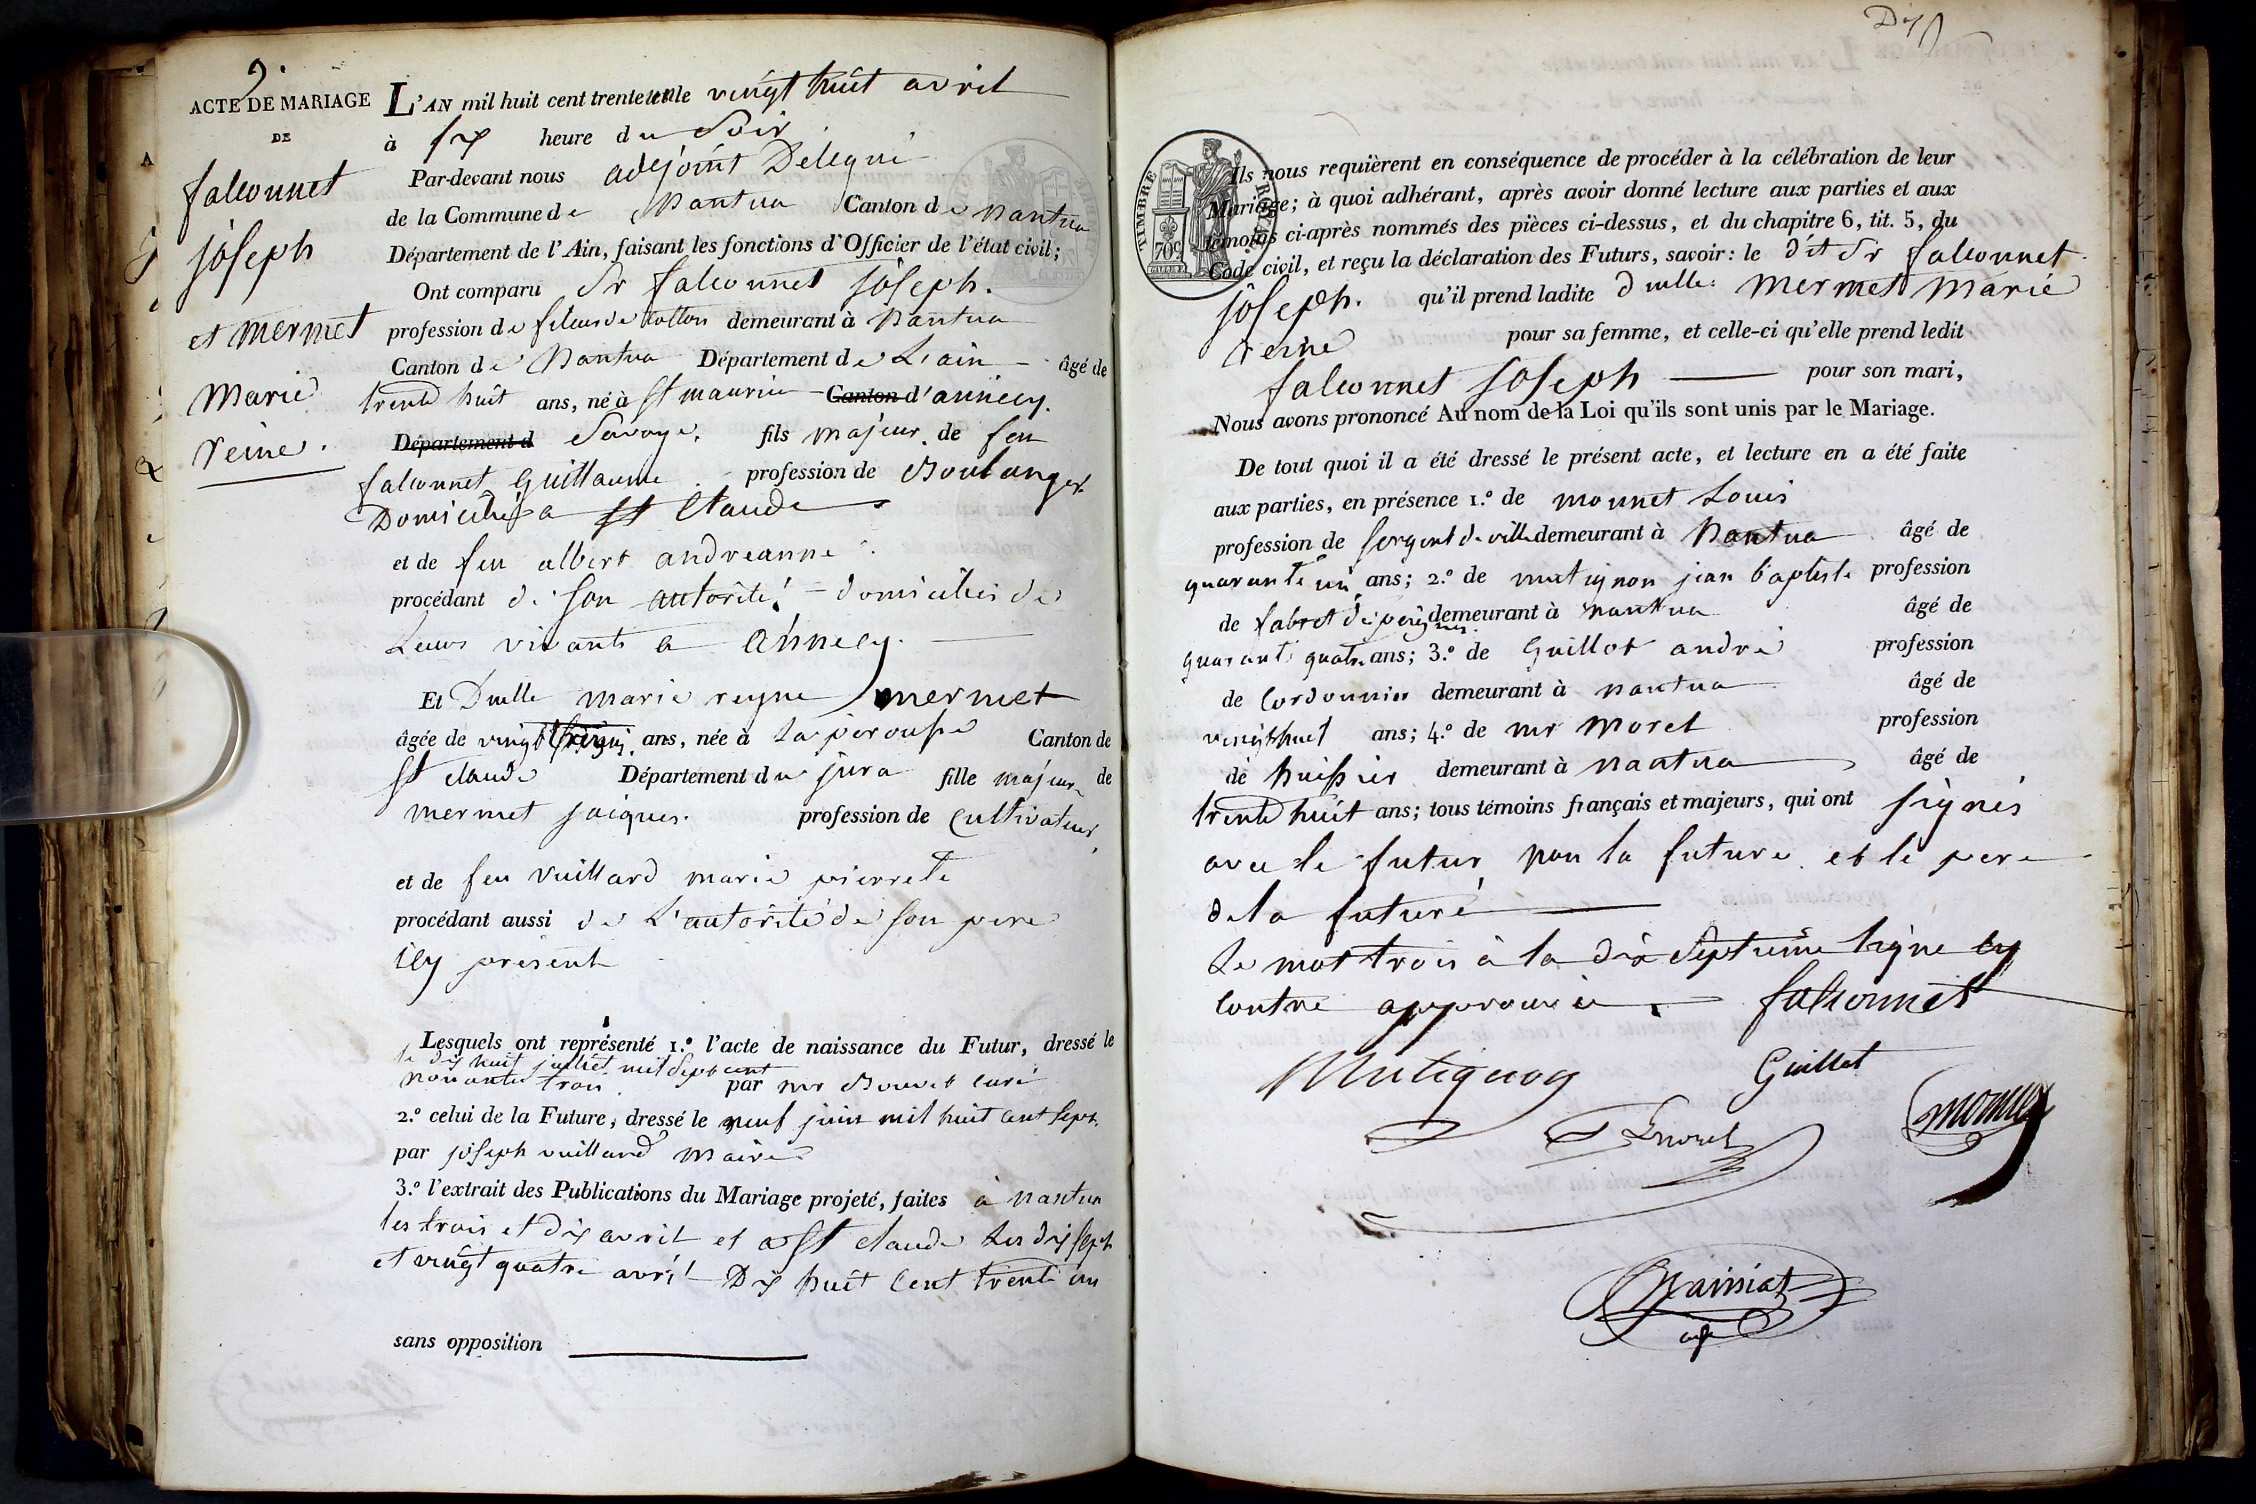 9.
ACTE DE MARIAGE
DE
falconnet
joseph
et mermet
Marie
reine.
L'AN mil huit cent trente un le vingt huit avril
à six heure du Soir
Par-devant nous adejoint Delegué
de la Commune de Nantua Canton de Nantua
Département de l'Ain, faisant les fonctions d'Officier de l'état civil;
Ont comparu Sr falconnet joseph.
profession de fileur de cotton demeurant à Nantua
Canton de Nantua Département de L'ain - âgé de
trente huit ans, né à St maurice - Canton d'annecy.
Département d Savoye. fils majeur de feu
falconnet Guillaume. profession de Boulanger
Domicilié a St Claude
et de feu albert andreanne.
procédant de son autorité! - domiciliés de
Leurs vivants a annecy.
Et Dnelle marie reyne mermet
âgée de vingt trois ans, née à La perouse Canton de
St claude Département du jura fille majeure de
mermet jacques. profession de Cultivateur,
et de feu Vuillard marie pierrete
procédant aussi de L'autorité de son pere
icy present
Lesquels ont représenté 1.º l'acte de naissance du Futur, dressé le
le dix huit juillet mil sept cent
nonante trois par mr Bouvet curé
2.º celui de la Future, dressé le neuf juin mil huit cent sept.
par joseph vuillard maire
3.º l'extrait des Publications du Mariage projeté, faites à nantua
les trois et dix avril et a St claude Les dix sept
et vingt quatre avril Dix huit Cent trente un
sans opposition
TIMBRE ROYAL
70c
Ils nous requièrent en conséquence de procéder à la célébration de leur
Mariage; à quoi adhérant, après avoir donné lecture aux parties et aux
témoins ci-après nommés des pièces ci-dessus, et du chapitre 6, tit. 5, du
Code civil, et reçu la déclaration des Futurs, savoir: le dit Sr falconnet
joseph. qu'il prend ladite dnelle: Mermet Marie
reine pour sa femme, et celle-ci qu'elle prend ledit
falconnet joseph pour son mari,
Nous avons prononcé Au nom de la Loi qu'ils sont unis par le Mariage.
De tout quoi il a été dressé le présent acte, et lecture en a été faite
aux parties, en présence 1.º de monnet Louis
profession de sergent de ville demeurant à Nantua âgé de
quarante un ans; 2.º de mutignon jean baptiste profession
de fabret de peignes demeurant à nantua âgé de
quarante quatre ans; 3.º de Guillot andré profession
de Cordonnier demeurant à nantua âgé de
vingt huit ans; 4.º de mr Moret profession
de huissier demeurant à nantua âgé de
trente huit ans; tous témoins français et majeurs, qui ont signés
avec le futur non la future et le pere
de la future
Le mot trois à la dix Septieme ligne cy
contre approuvée. falconnet
Mutignon Guillot
Moret monnet